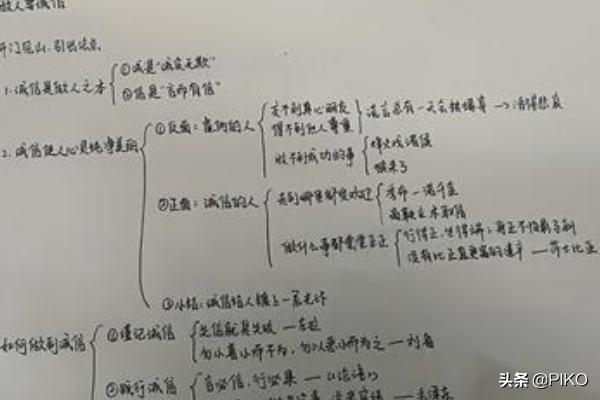 做人要诚信
开门见山，引出论点
1. 诚信是做人之本
①诚是“诚实无欺”
②信是“言而有信”
2. 诚信使人心灵纯净美丽
①反面：虚伪的人
交不到真心朋友
得不到他人尊重
谎言总有一天会被揭穿 → 活得悲哀
做不到成功的事
烽火戏诸侯
狼来了
②正面：诚信的人
走到哪里都受欢迎
季布一诺千金
商鞅立木取信
做什么事都堂堂正正
行得正，坐得端，身正不怕影子斜
没有比正直更富的遗产 —莎士比亚
③小结：诚信给人镀上一层光泽
如何做到诚信
①谨记诚信
失信就是失败 —左拉
勿以善小而不为，勿以恶小而为之 —刘备
②践行诚信
言必信，行必果 —《论语》
头条 @PIKO